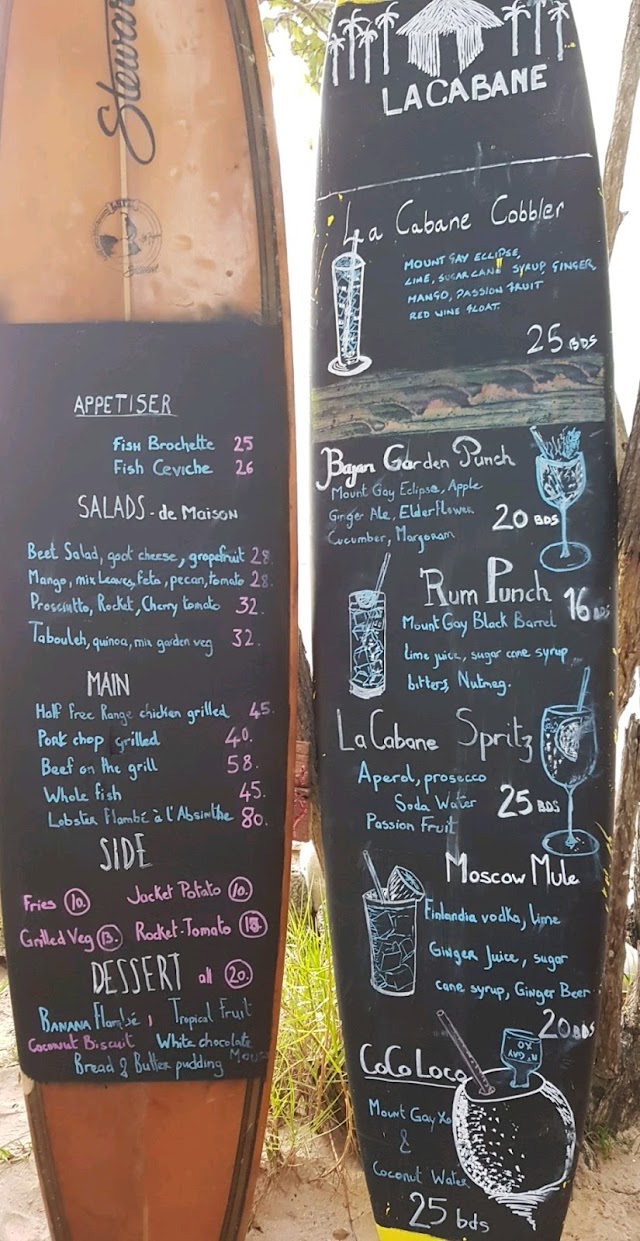 Stewar
APPETISER
Fish Brochette 25
Fish Ceviche 26
SALADS - de Maison
Beet Salad, goat cheese, grapefruit 28.
Mango, mix Leaves, feta, pecan, tomato 28.
Prosciutto, Rocket, Cherry tomato 32.
Tabouleh, quinoa, mix garden veg 32.
MAIN
Half Free Range chicken grilled 45.
Pork chop grilled 40.
Beef on the grill 58.
Whole fish 45.
Lobster Flambé à l'Absinthe 80.
SIDE
Fries 10. Jacket Potato 10.
Grilled Veg 13. Rocket-Tomato
DESSERT all 20.
Banana Flambé, Tropical Fruit
Coconut Biscuit White chocolate
Bread & Butter pudding
LA CABANE
La Cabane Cobbler
MOUNT GAY ECLIPSE,
LIME, SUGAR CANE SYRUP GINGER,
MANGO, PASSION FRUIT
RED WINE FLOAT.
25 BDS
Bajan Garden Punch
Mount Gay Eclipse, Apple
Ginger Ale, Elderflower
Cucumber, Margoram
20 BDS
Rum Punch 16 BDS
Mount Gay Black Barrel
lime juice, sugar cane syrup,
bitters, Nutmeg.
La Cabane Spritz
Aperol, prosecco
Soda Water
Passion Fruit
25 BDS
Moscow Mule
Finlandia vodka, lime
Ginger Juice, sugar
cane syrup, Ginger Beer
20 BDS
CoCoLoco
Mount Gay XO
&
Coconut Water
25 bds
Mt GAY
XO